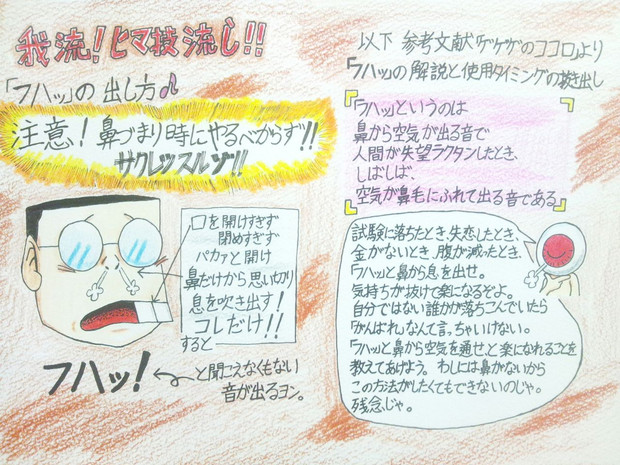 我流!ヒマ技流し!!
「フハッ」の出し方♪
注意!鼻づまり時にやるべからず!!
サクレツスルゾ!!
口を開けすぎず
閉めすぎず
パカァと開け
鼻だけから思い切り
息を吹き出す!
コレだけ!!
すると
フハッ!
と聞こえなくもない
音が出るヨン。
以下 参考文献『ゲゲゲのココロ』より
「フハッ」の解説と使用タイミングの抜き出し
「フハッ」というのは
鼻から空気が出る音で
人間が失望ラクタンしたとき、
しばしば、
空気が鼻毛にふれて出る音である
試験に落ちたとき、失恋したとき、
金がないとき、腹が減ったとき、
「フハッ」と鼻から息を出せ。
気持ちが抜けて楽になるぞよ。
自分ではない誰かが落ちこんでいたら
「がんばれ」なんて言っちゃいけない。
「フハッ」と鼻から空気を通せ、と楽になれることを
教えてあげよう。わしには鼻がないから
この方法がしたくてもできないのじゃ。
残念じゃ。